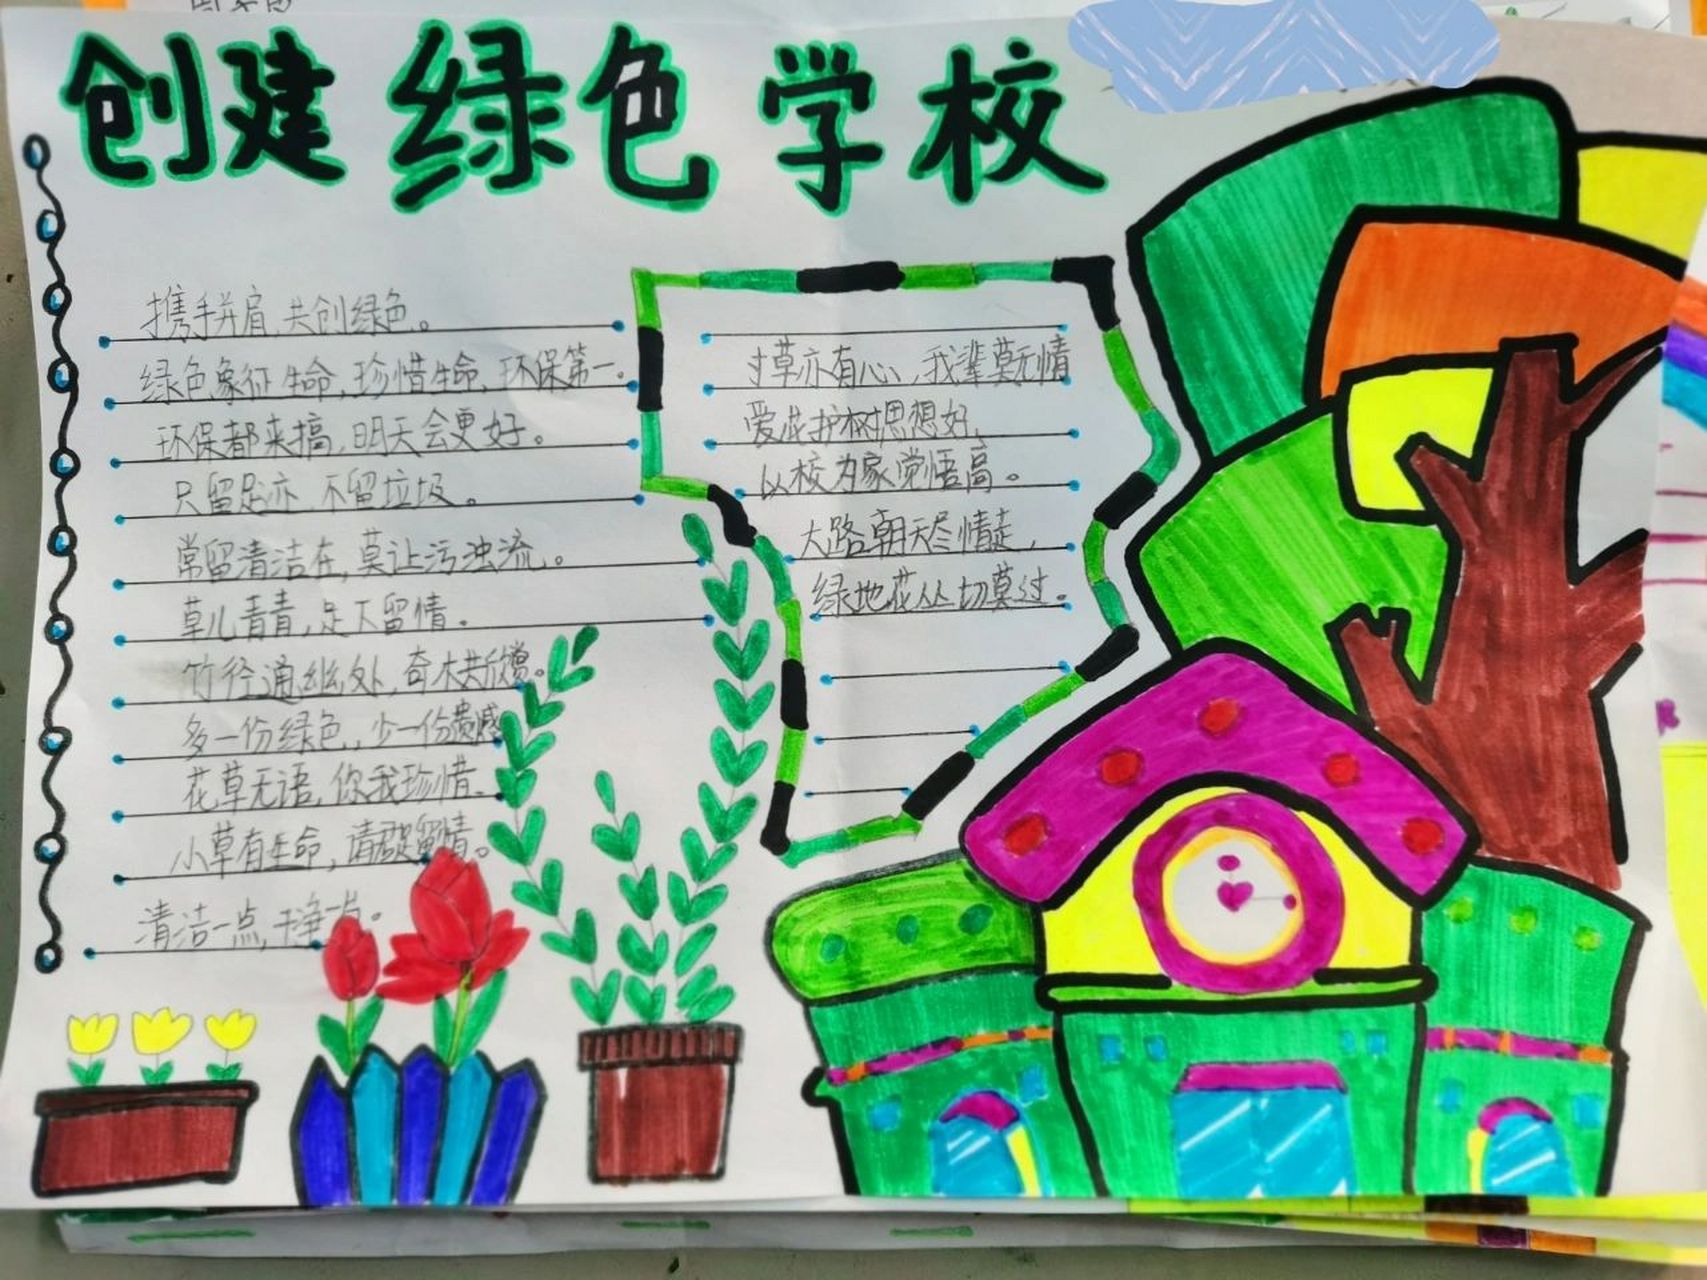 创建绿色学校
携手并肩,共创绿色。
绿色象征生命,珍惜生命,环保第一。
环保都来搞,明天会更好。
只留足亦,不留垃圾。
常留清洁在,莫让污浊流。
草儿青青,足下留情。
竹径通幽处,奇木共欣赏。
多一份绿色,少一份遗憾
花草无语,你我珍惜。
小草有生命,请君足留情。
清洁一点,干净一点。
寸草亦有心,我辈莫无情
爱花护树思想好,
以校为家觉悟高。
大路朝天尽情走,
绿地花丛切莫过。